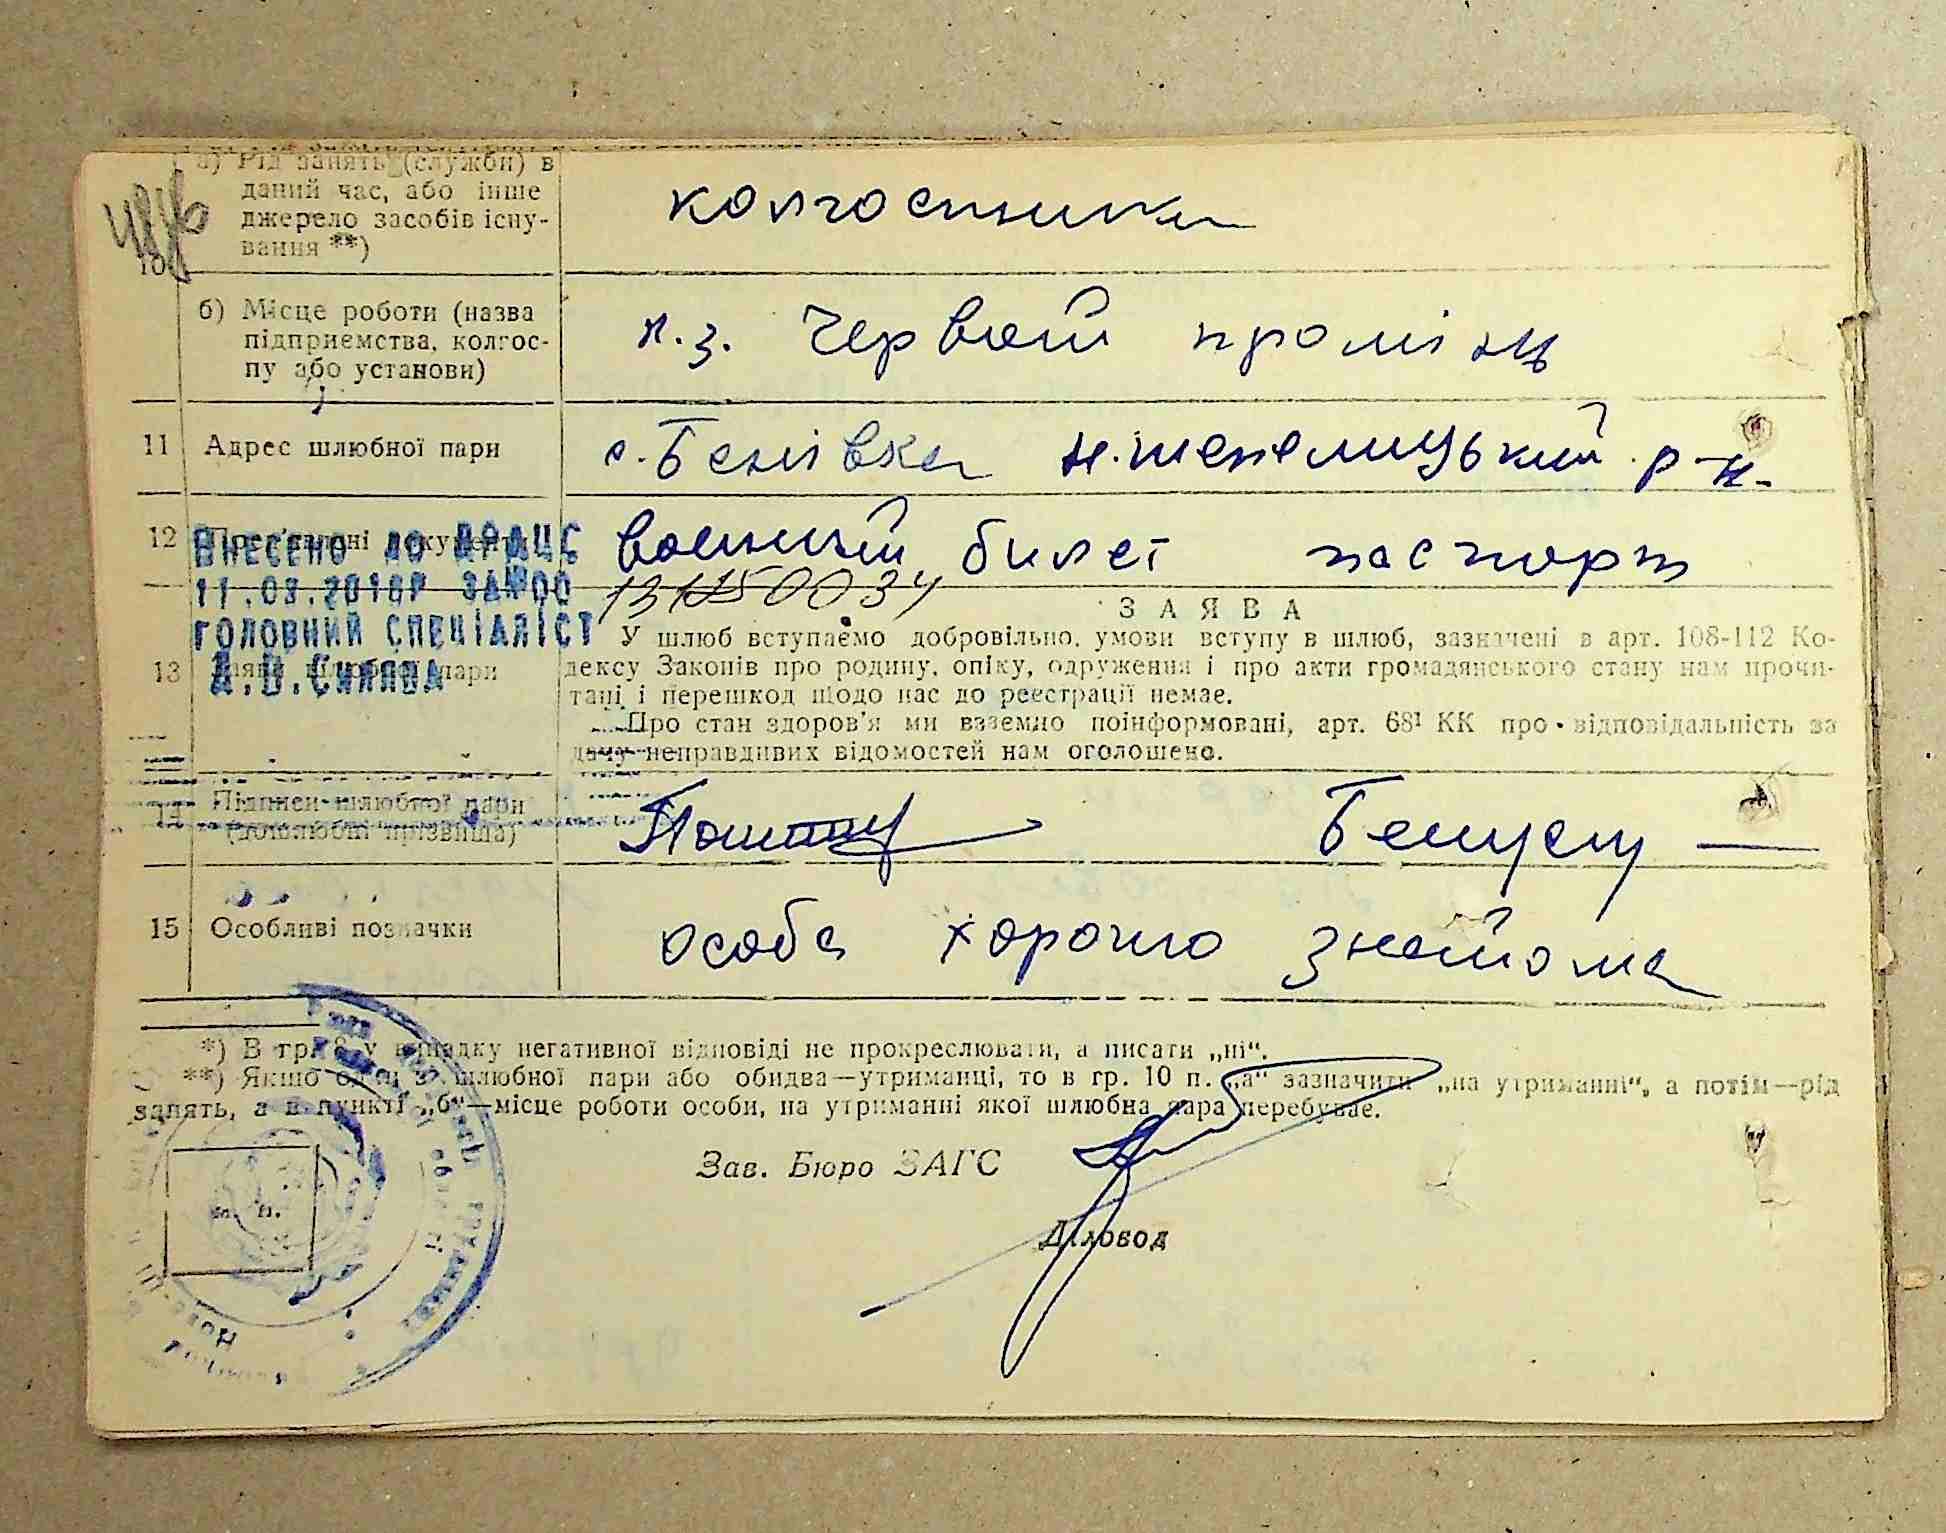 а) Рід занять (служби) в
даний час, або інше
джерело засобів існу-
вання **)
10
колгоспники
б) Місце роботи (назва
підприємства, колгос-
пу або установи)
к.з. Червоний промінь
11 Адрес шлюбної пари
с. Бенівка н.шепелицький р-н.
12 документи
воєнний билет паспорт
ВНЕСЕНО ДО ДРАЦС
11.03.2016Р ЗА №00
13150034
ГОЛОВНИЙ СПЕЦІАЛІСТ
13 пари
ЗАЯВА
У шлюб вступаємо добровільно, умови вступу в шлюб, зазначені в арт. 108-112 Ко-
дексу Законів про родину, опіку, одруження і про акти громадянського стану нам прочи-
тані і перешкод щодо нас до реєстрації немає.
Про стан здоров'я ми взаємно поінформовані, арт. 68¹ КК про відповідальність за
дачу неправдивих відомостей нам оголошено.
14 Підписи шлюбної пари
(дошлюбні прізвища)
15 Особливі позначки
особа хорошо знайома
*) В гр. 8 у випадку негативної відповіді не прокреслювати, а писати „ні“.
**) Якщо один з шлюбної пари або обидва—утриманці, то в гр. 10 п. „а“ зазначити „на утриманні“, а потім—рід
занять, а в пункті „б“—місце роботи особи, на утриманні якої шлюбна пара перебуває.
Зав. Бюро ЗАГС
м. п.
Діловод